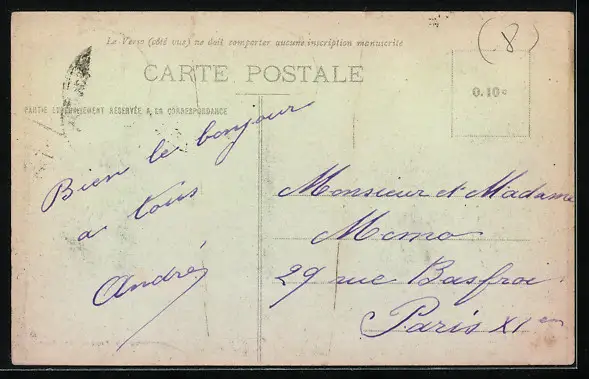 Le Verso (côté vue) ne doit comporter aucune inscription manuscrite
CARTE POSTALE
(8)
0.10c
PARTIE EXCLUSIVEMENT RÉSERVÉE A LA CORRESPONDANCE
Bien le bonjour
a tous
André
Monsieur et Madame
Momo
29 rue Basfroi
Paris XI em